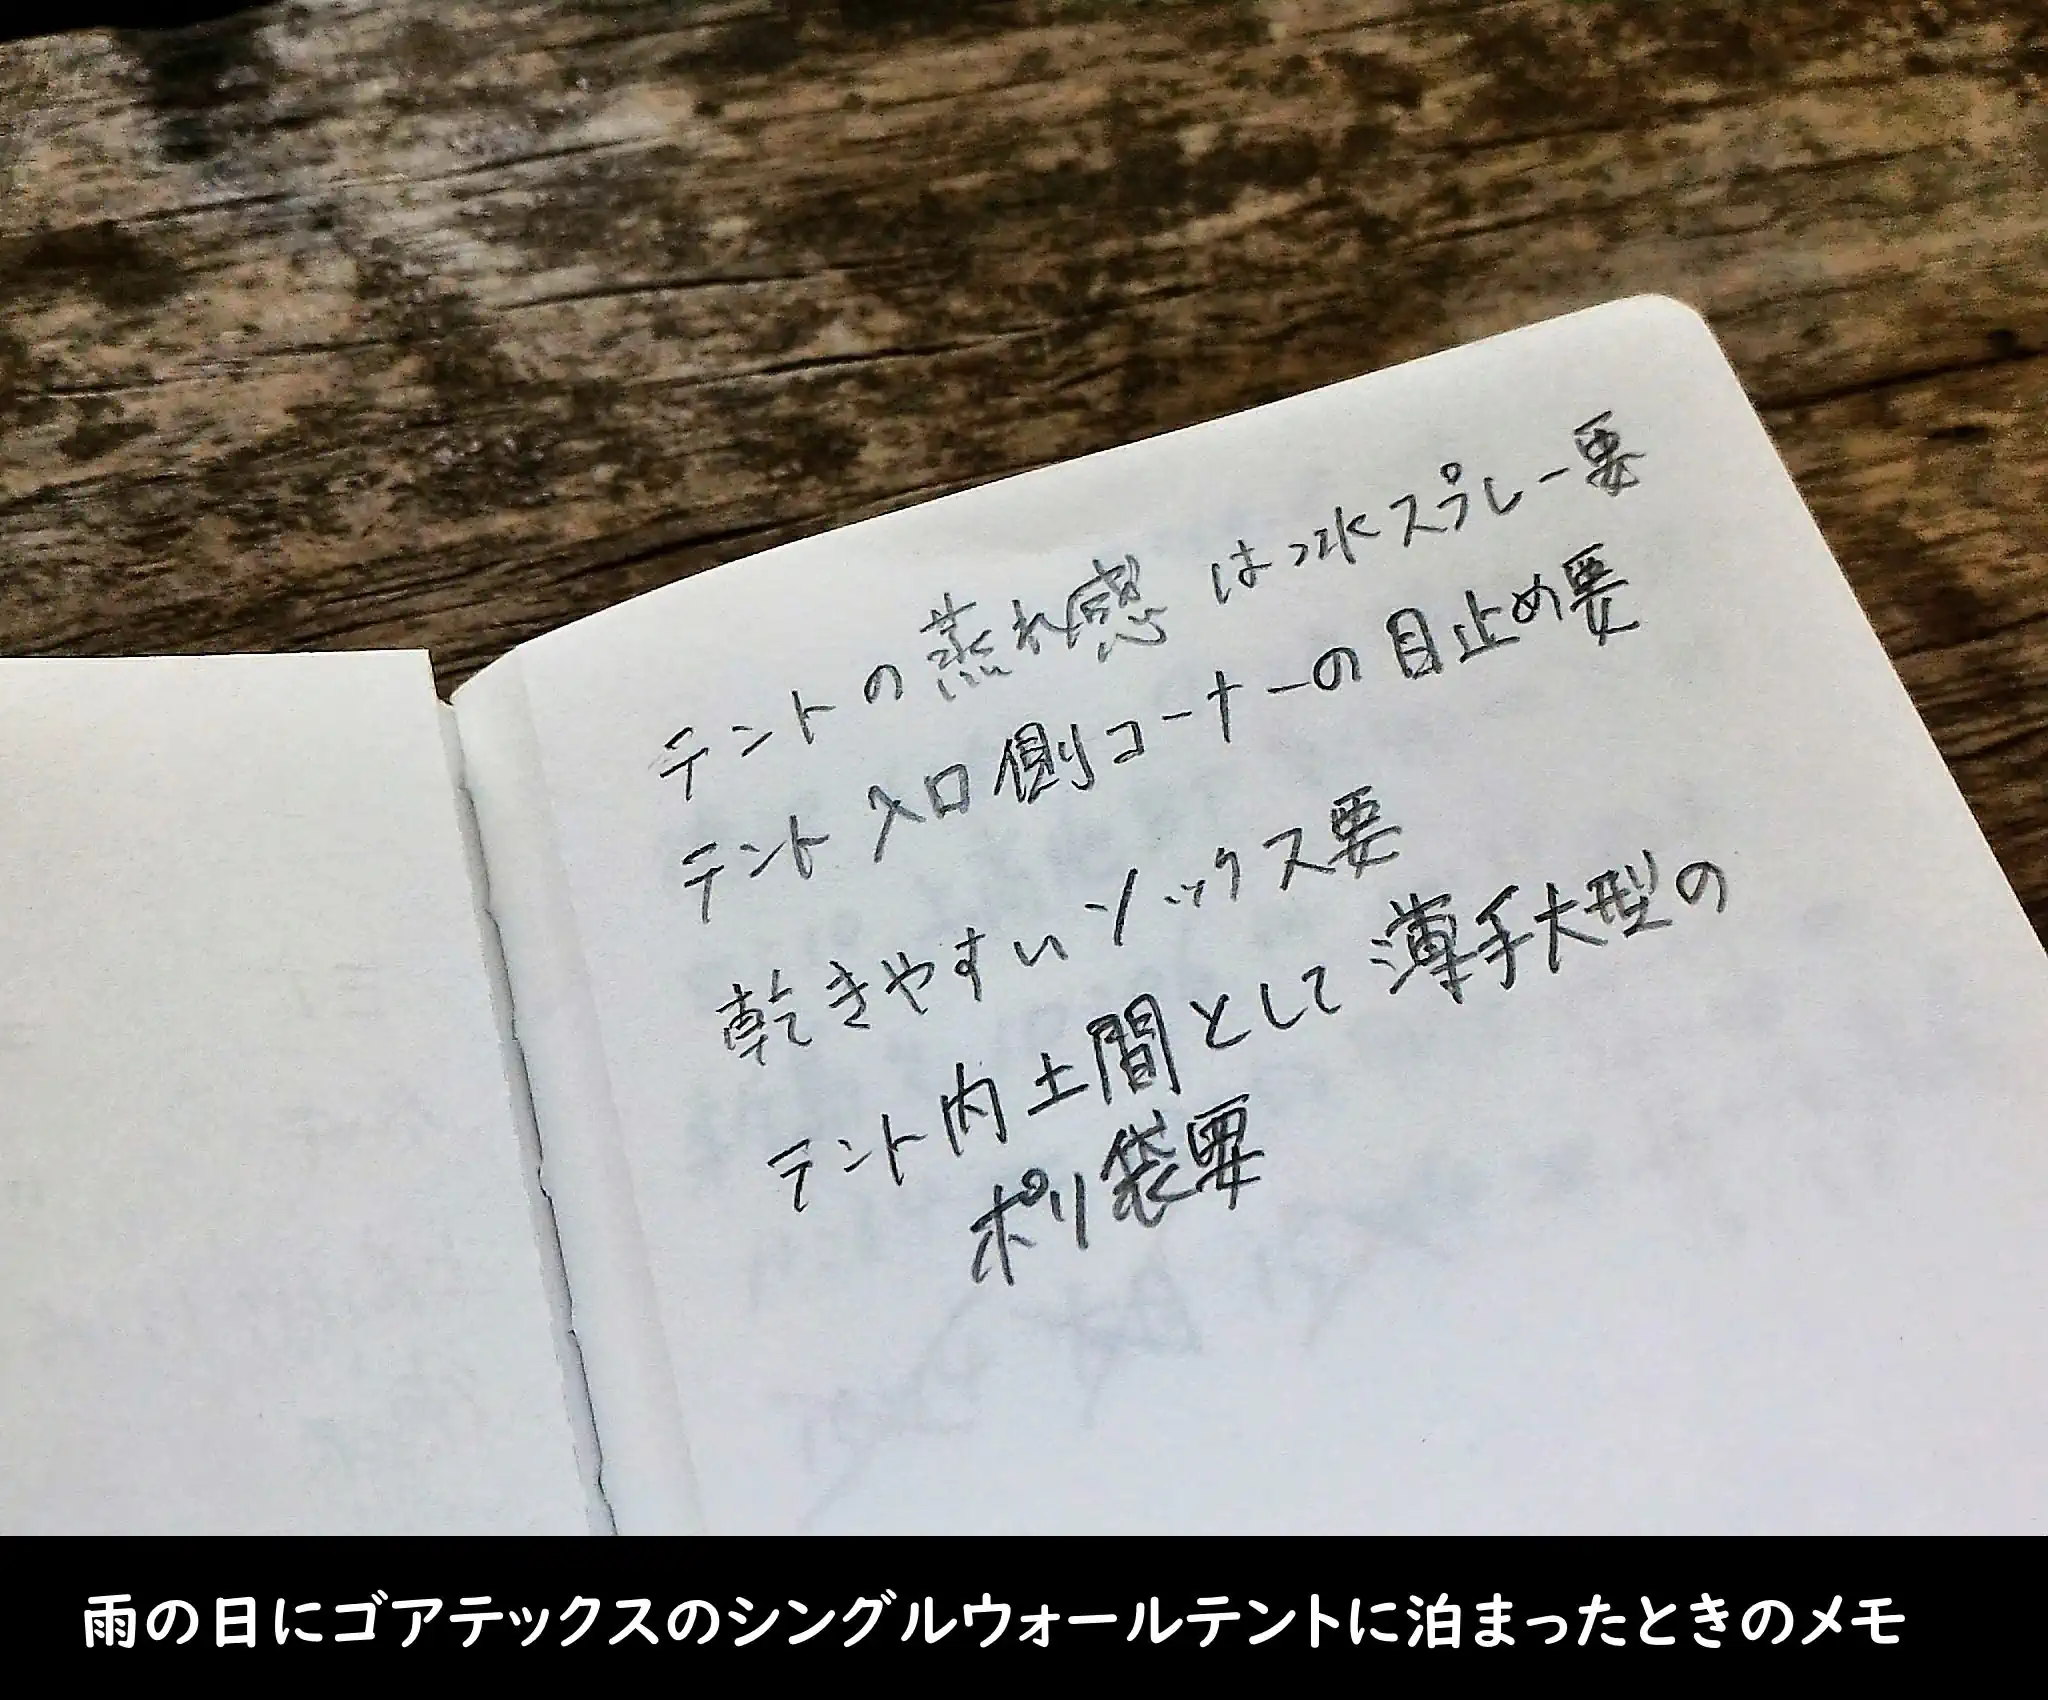 テントの蒸れ感 はっ水スプレー要
テント入口側コーナーの目止め要
乾きやすいソックス要
テント内土間として薄手大型の
ポリ袋要
雨の日にゴアテックスのシングルウォールテントに泊まったときのメモ